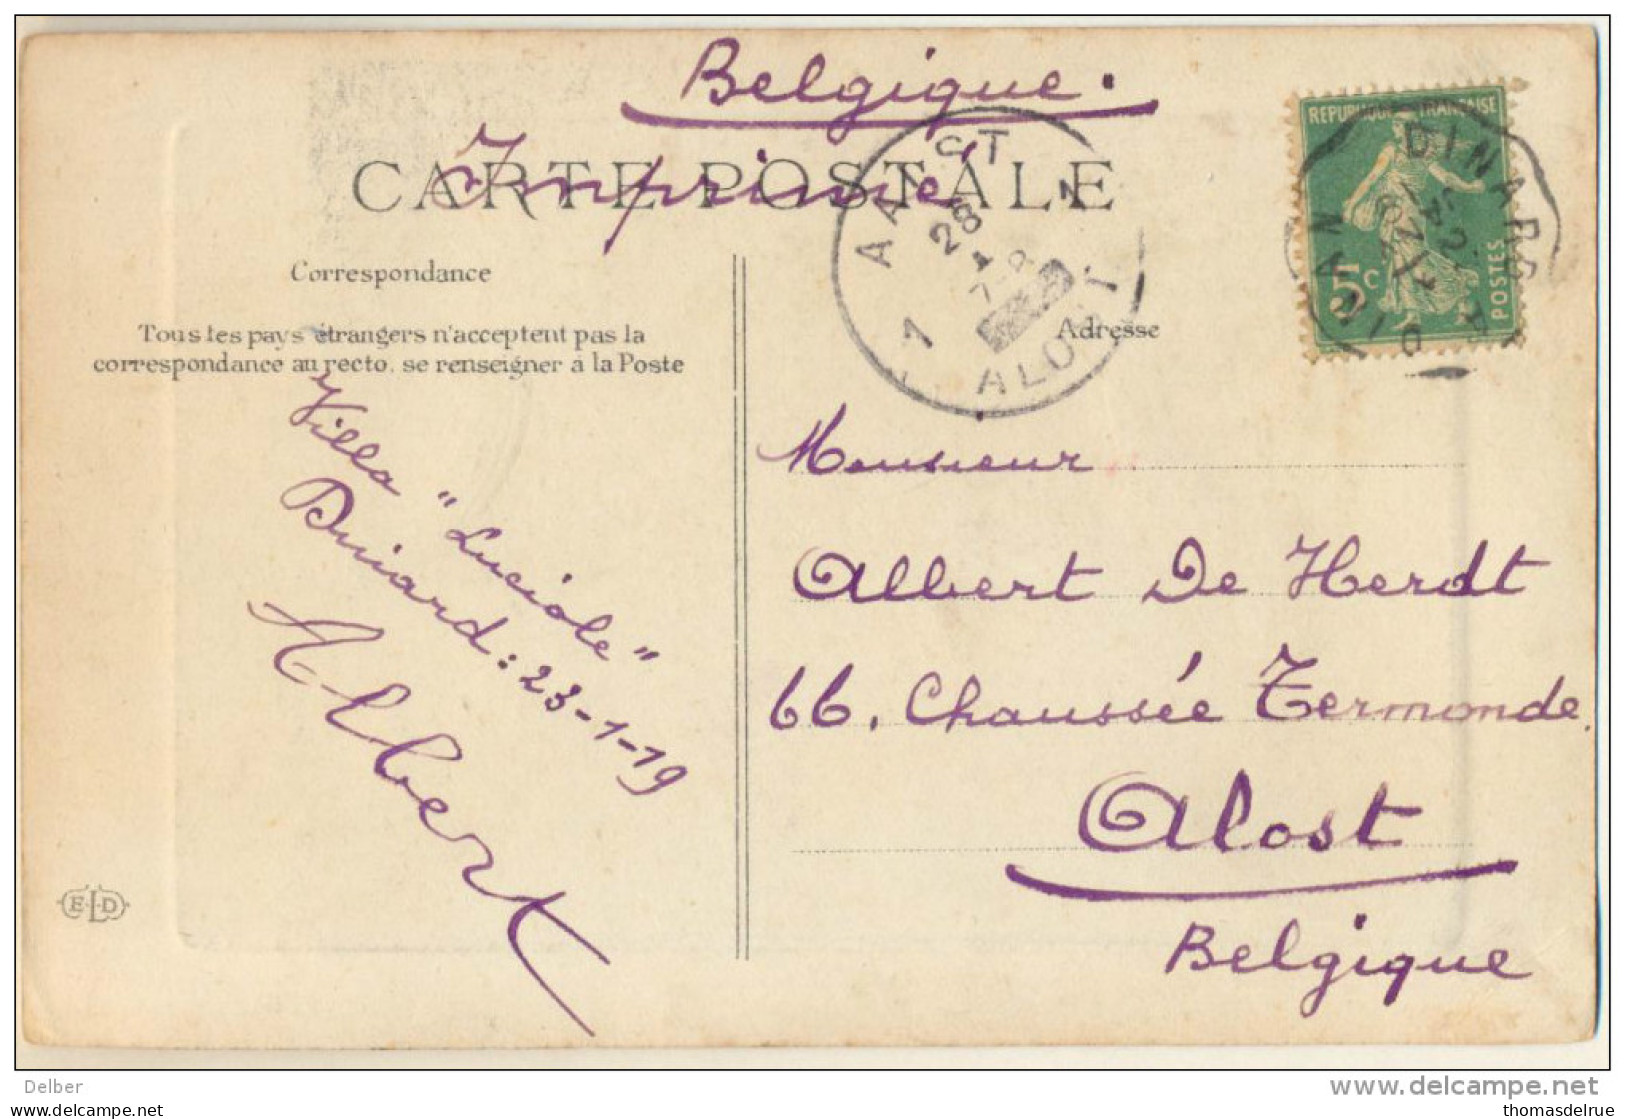 Belgique.
CARTE POSTALE
Imprimé
Correspondance
Tous les pays étrangers n'acceptent pas la
correspondance au recto, se renseigner à la Poste
Villa "Luciole"
Dinard: 23-1-19
Albert
E·L·D
AALST 1
28
1 ALOST 1
Adresse
REPUBLIQUE FRANÇAISE
5c
POSTES
DINARD
DINAN
Monsieur
Albert De Herdt
66. Chaussée Termonde.
Alost
Belgique
Delber
www.delcampe.net
thomasdelrue